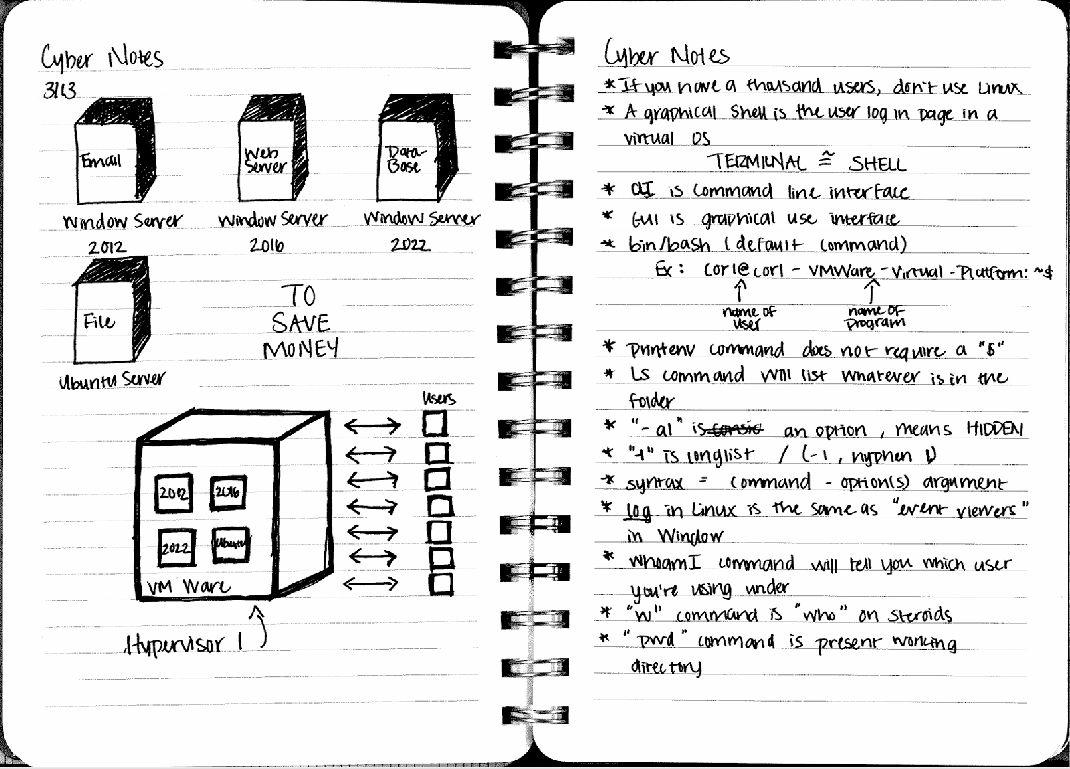 Cyber Notes
3/13
Email
Web
Server
Data-
Base
Window Server
2012
Window Server
2016
Window Server
2022
File
Ubuntu Server
TO
SAVE
MONEY
Users
2012
2016
2022
Ubuntu
VM Ware
Hypervisor 1
Cyber Notes
* If you have a thousand users, don't use Linux
* A graphical Shell is the user log in page in a
virtual OS
TERMINAL ≅ SHELL
* CLI is command line interface
* GUI is graphical use interface
* bin/bash (default command)
Ex: cori@cori-VMWare-Virtual-Platform:~$
name of
user
name of
program
* printenv command does not require a "$"
* LS command will list whatever is in the
folder
* "-al" is an option, means HIDDEN
* "-l" is longlist / (-l, hyphen l)
* syntax = command - option(s) argument
* log in Linux is the same as "event viewers"
in Window
* whoamI command will tell you which user
you're using under
* "w" command is "who" on steroids
* "pwd" command is present working
directory